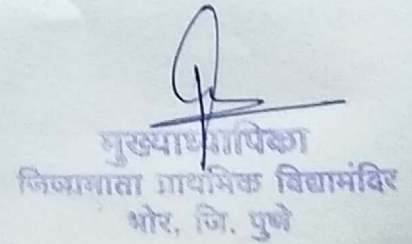 मुख्याध्यापिका
जिजामाता प्राथमिक विद्यामंदिर
भोर, जि. पुणे